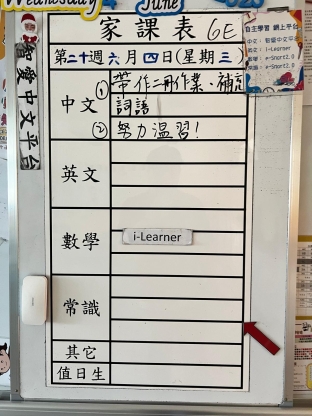 Wednesday
June
家課表 6E
第二十週六月四日(星期三)
自主學習 網上平台
中文：智愛中文平台
英文：i-Learner
數學：e-Smart2.0
常識：e-Smart2.0
智愛中文平台
中文
① 帶作二冊作業、補充
詞語
② 努力溫習！
英文
數學
i-Learner
常識
其它
值日生